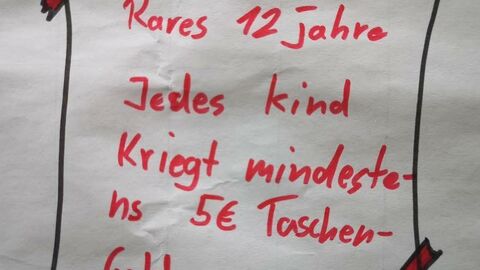 Rares 12 Jahre
Jedes kind
Kriegt mindeste-
ns 5€ Taschen-